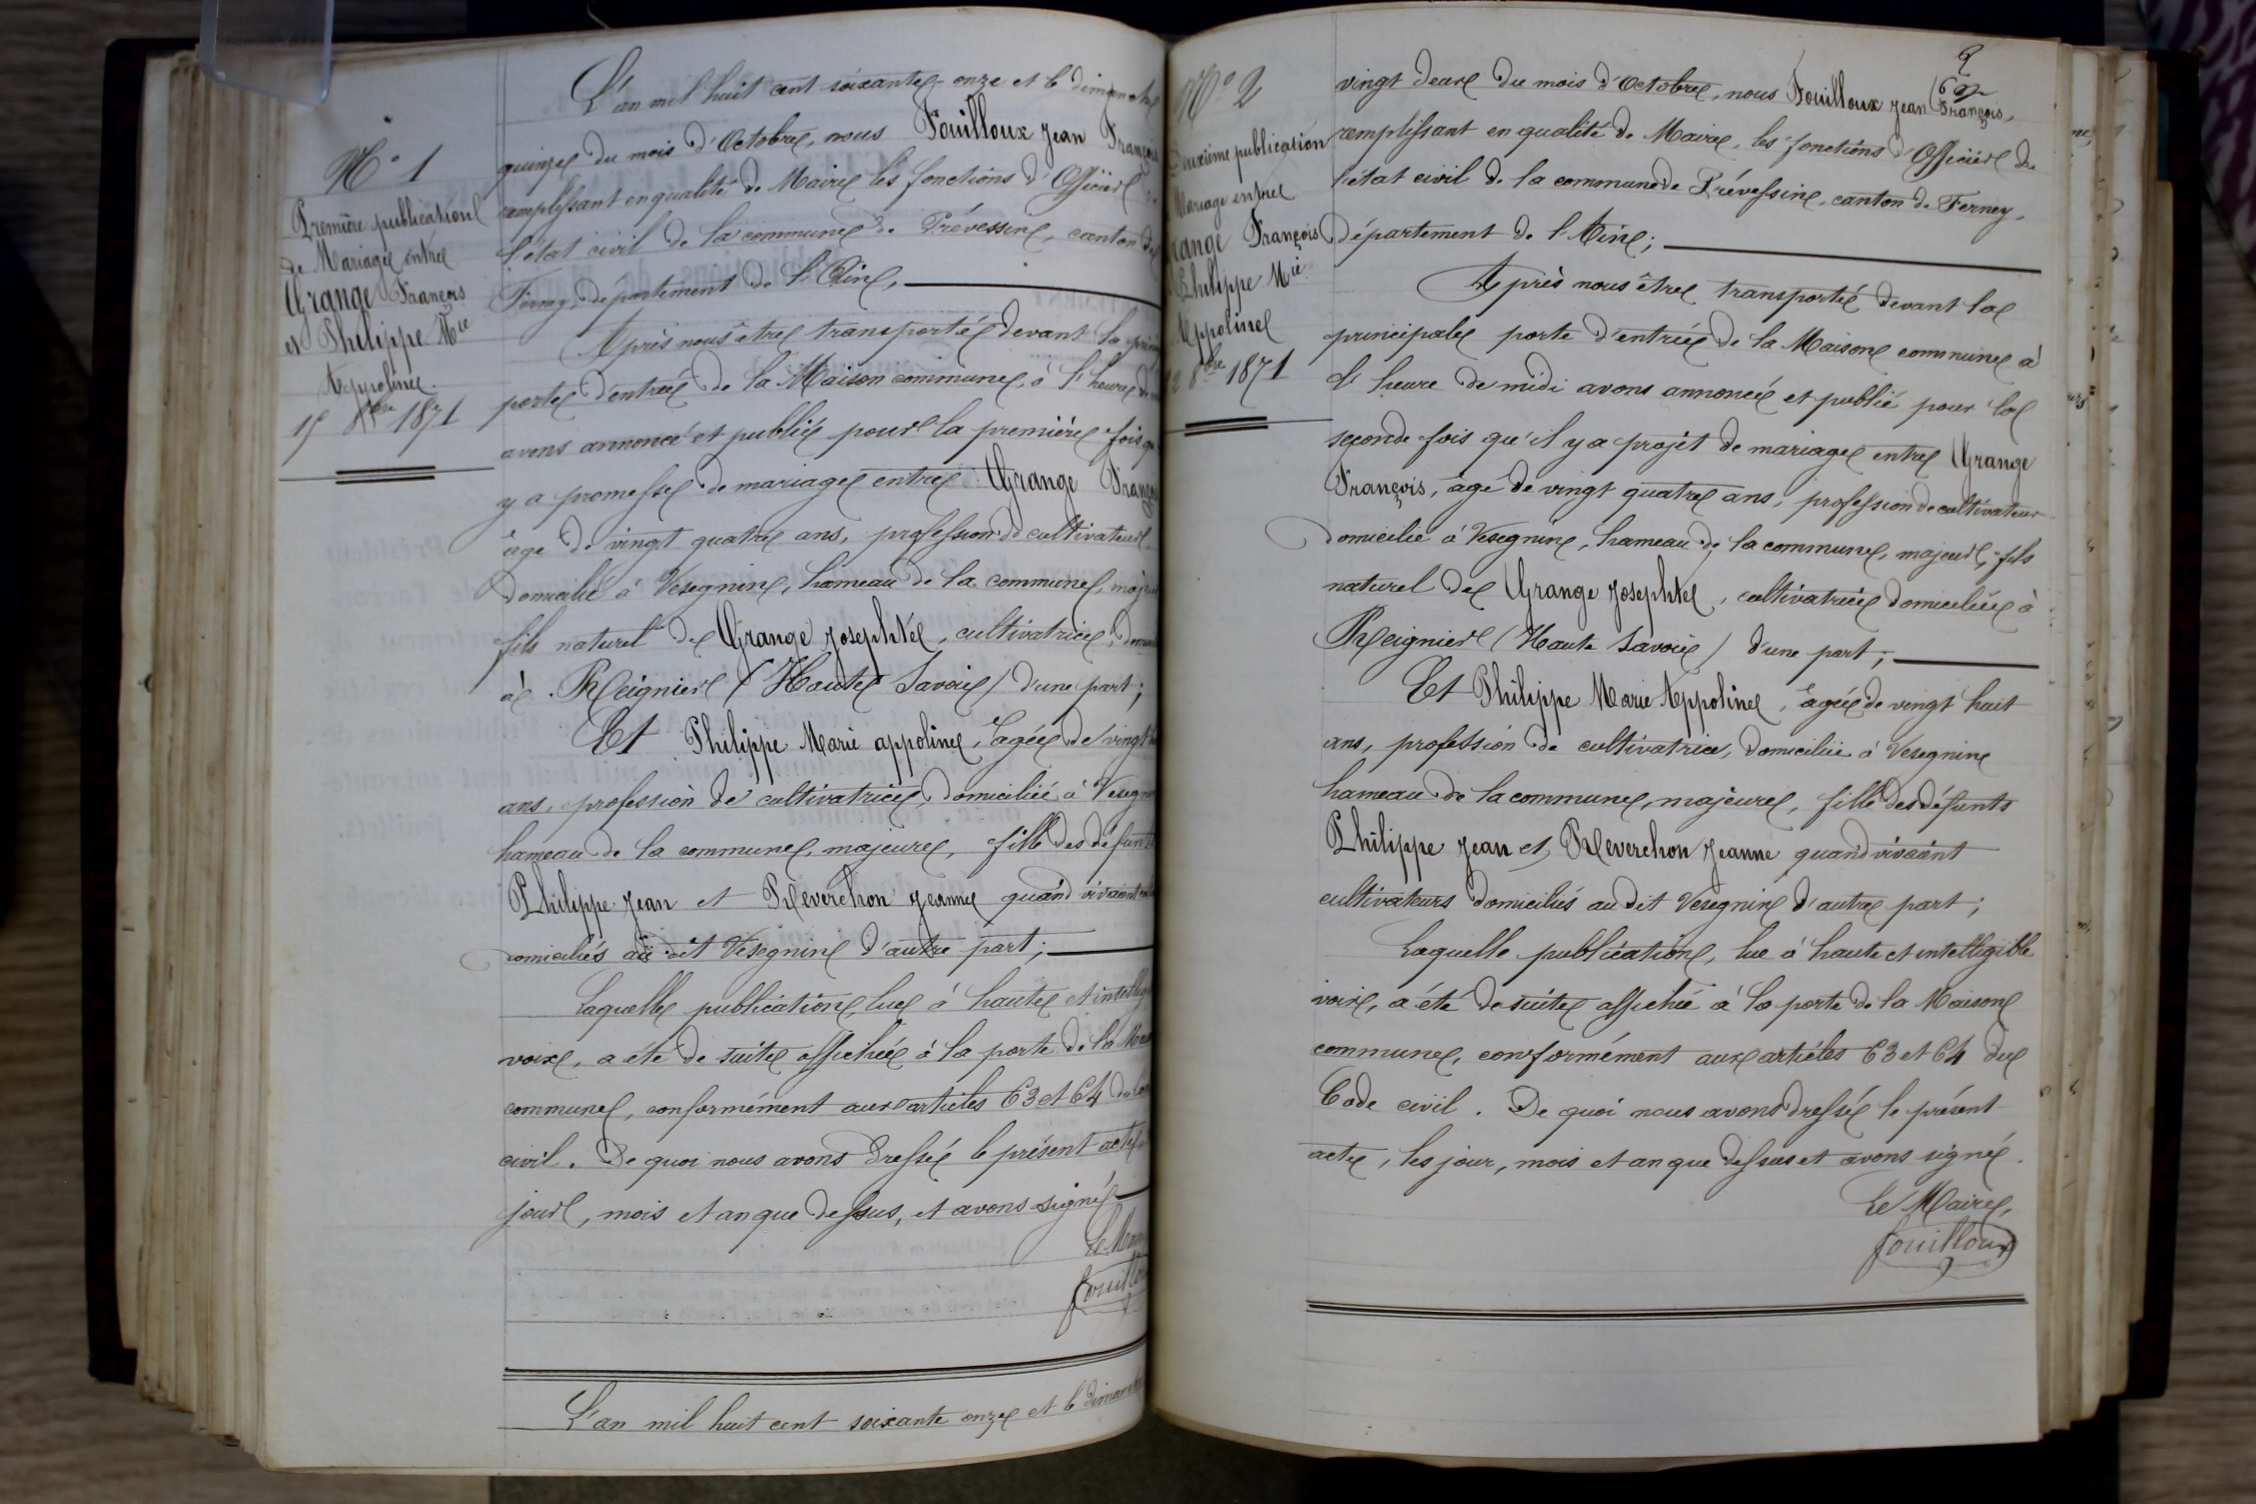 N° 1
Première publication
de Mariage entre
Grange François
et Philippe Mie
Appoline
15 8bre 1871
L'an mil huit cent soixante onze et le dimanche
quinze du mois d'Octobre, nous Fouilloux Jean François
remplissant en qualité de Maire les fonctions d'Officier
l'état civil de la commune de Prévessin, canton de
Ferney, département de l'Ain,
Après nous être transporté devant la
porte d'entrée de la Maison commune, à l'heure de
avons annoncé et publié pour la première fois
y a promesse de mariage entre Grange François
âgé de vingt quatre ans, profession de cultivateur
domicilié à Vesegnin, hameau de la commune,
fils naturel de Grange Josephte, cultivatrice,
à Reignier (Haute Savoie) d'une part;
Et Philippe Marie appoline, âgée de vingt
ans, profession de cultivatrice, domiciliée à
hameau de la commune, majeure, fille des défunts
Philippe Jean et Reverchon Jeanne quand vivaient
domiciliés au dit Vesegnin d'autre part;
Laquelle publication, lue à haute et
voix, a été de suite affichée à la porte de la
commune, conformément aux articles 63 et 64 du
civil. De quoi nous avons dressé le présent acte
jour, mois et an que dessus, et avons signé
Le
L'an mil huit cent soixante onze et le dimanche
2
N° 2
publication
Mariage entre
François
Philippe Mie
Appoline
8bre 1871
vingt deux du mois d'Octobre, nous Fouilloux Jean François,
remplissant en qualité de Maire, les fonctions d'Officier de
l'état civil de la commune de Prévessin, canton de Ferney,
département de l'Ain;
Après nous être transporté devant la
principale porte d'entrée de la Maison commune à
l'heure de midi avons annoncé et publié pour la
seconde fois qu'il y a projet de mariage entre Grange
François, âgé de vingt quatre ans, profession de cultivateur
domicilié à Vesegnin, hameau de la commune, majeur, fils
naturel de Grange Josephte, cultivatrice domiciliée à
Reignier (Haute Savoie) d'une part;
Et Philippe Marie Appoline, âgée de vingt huit
ans, profession de cultivatrice, domiciliée à Vesegnin
hameau de la commune, majeure, fille des défunts
Philippe Jean et Reverchon Jeanne quand vivaient
cultivateurs domiciliés au dit Vesegnin d'autre part;
Laquelle publication, lue à haute et intelligible
voix, a été de suite affichée à la porte de la Maison
commune, conformément aux articles 63 et 64 du
Code civil. De quoi nous avons dressé le présent
acte, les jour, mois et an que dessus et avons signé.
Le Maire,
Fouilloux